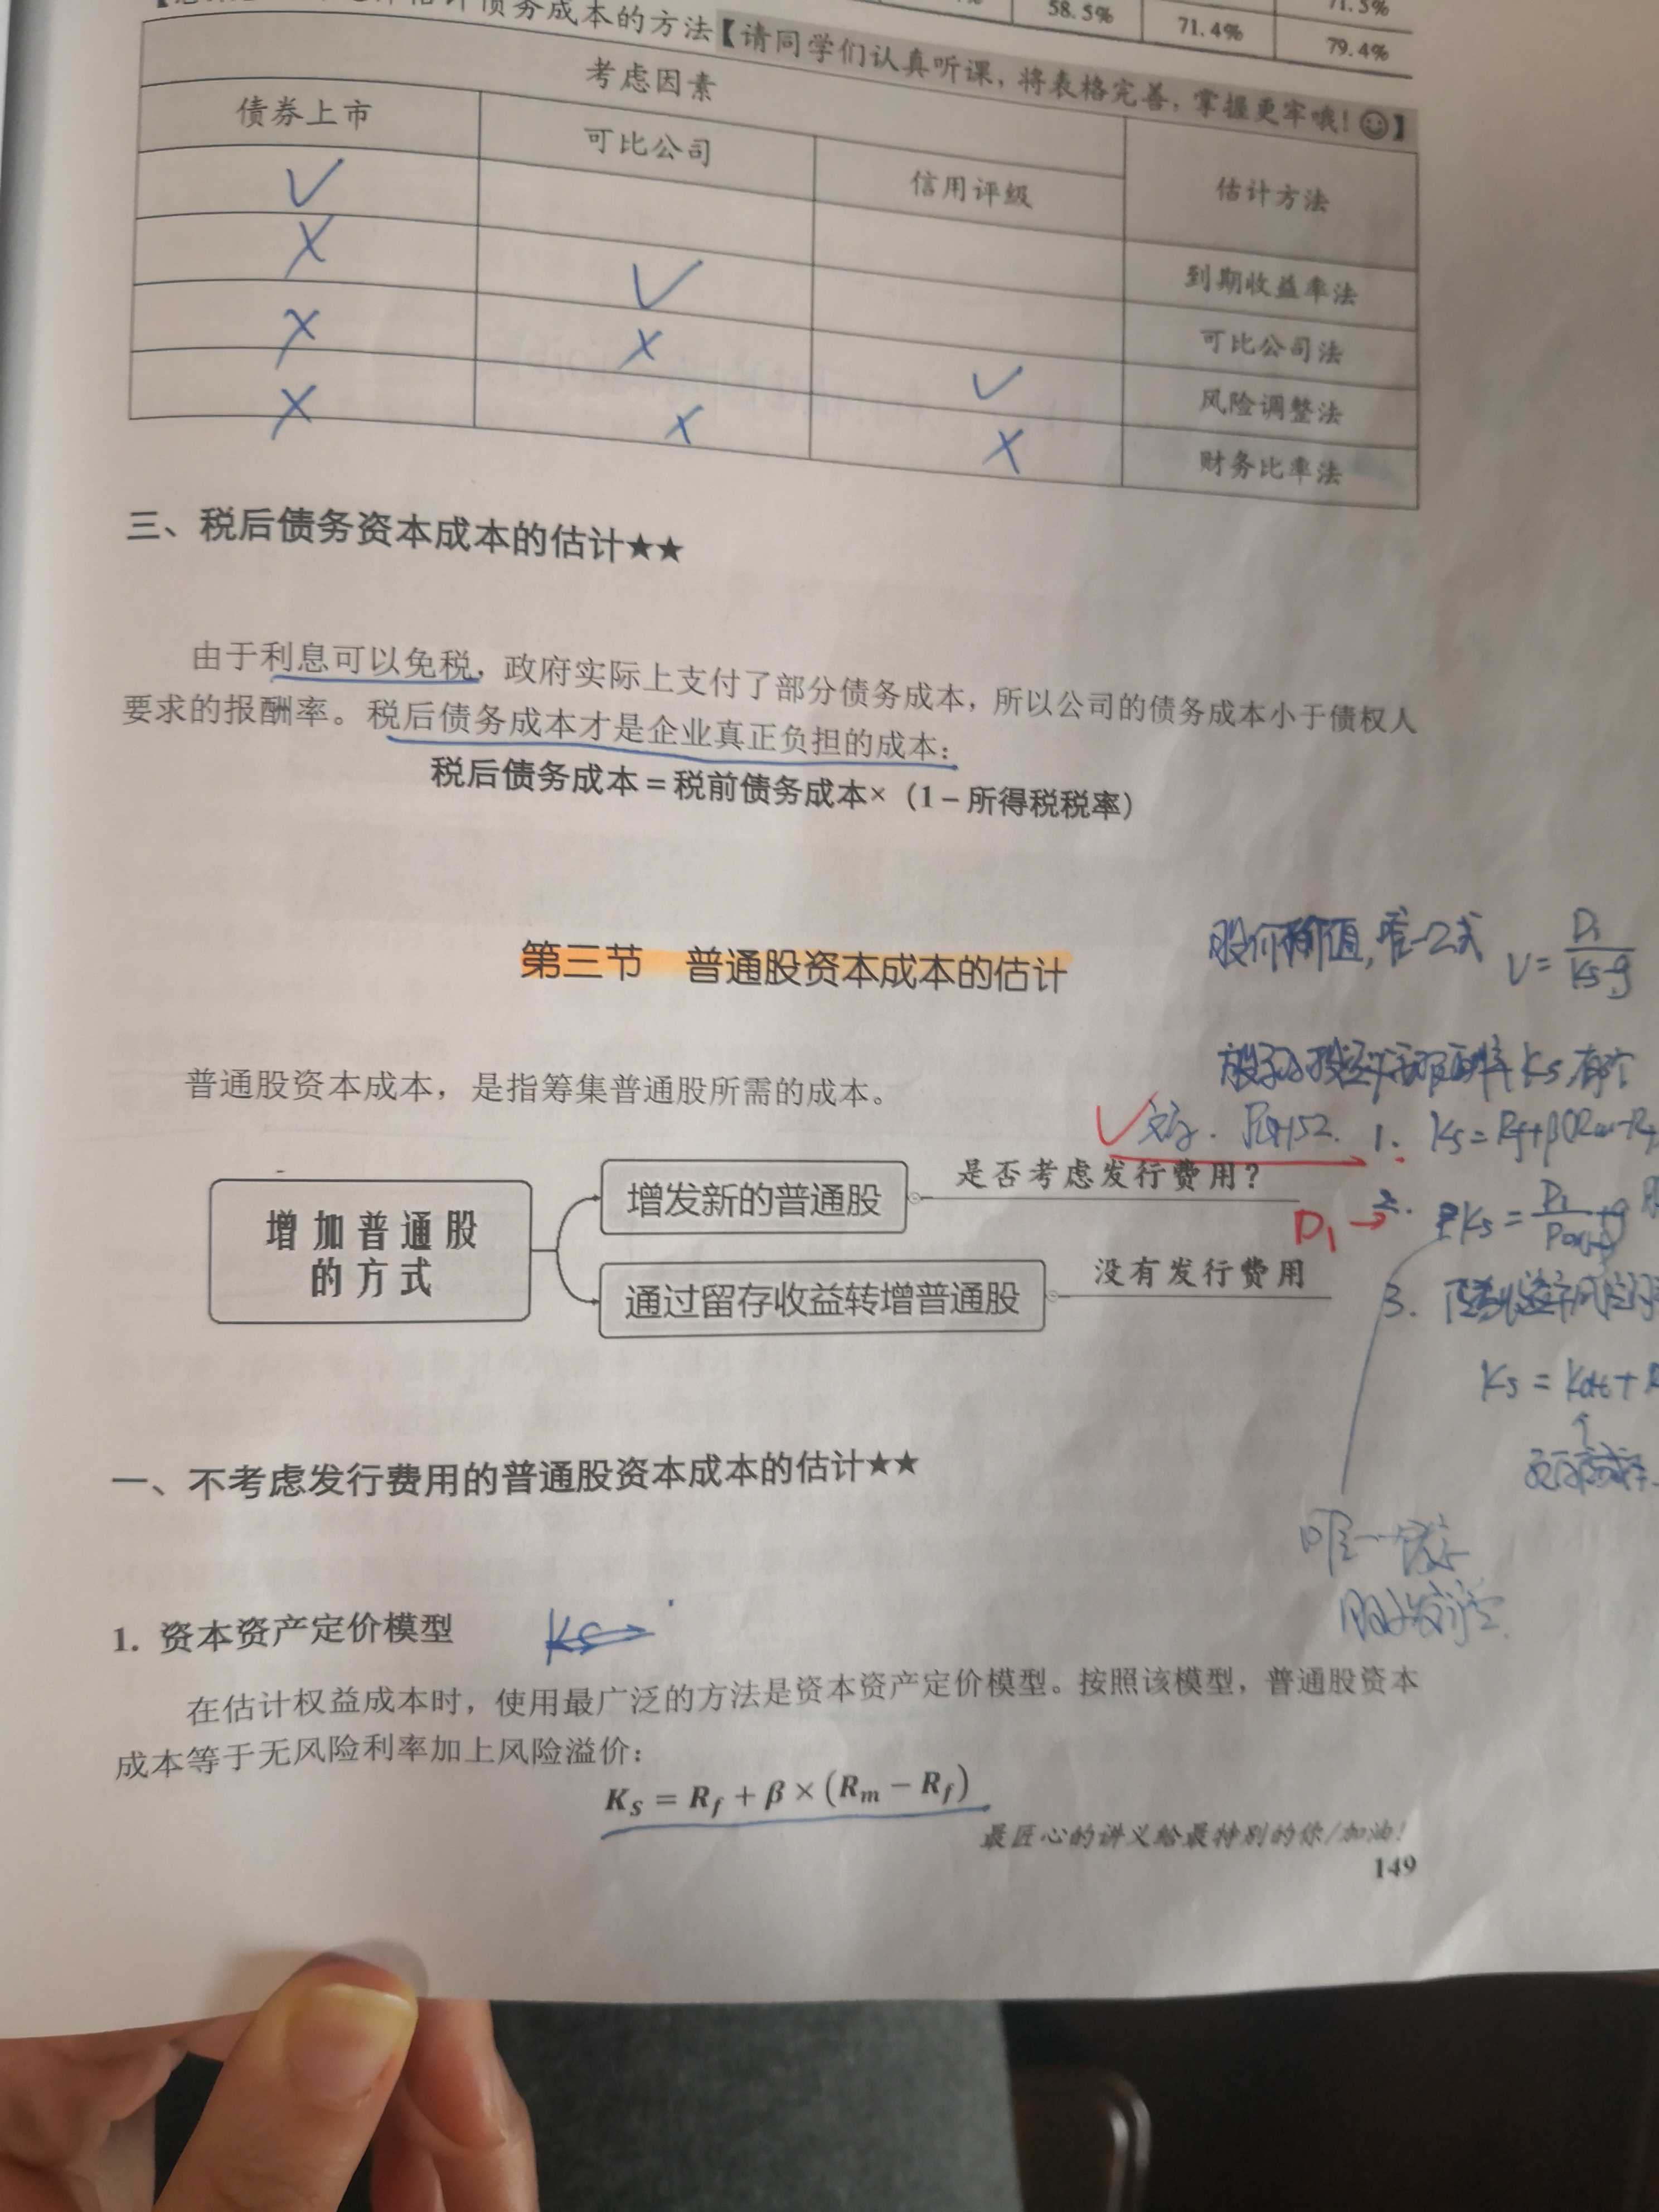 估计债务成本的方法【请同学们认真听课，将表格完善，掌握更牢哦！☺】
58.5%
71.4%
71.5%
79.4%
考虑因素
债券上市
可比公司
信用评级
估计方法
✓
到期收益率法
× ✓
可比公司法
× × ✓
风险调整法
× × ×
财务比率法
三、税后债务资本成本的估计★★
由于利息可以免税，政府实际上支付了部分债务成本，所以公司的债务成本小于债权人
要求的报酬率。税后债务成本才是企业真正负担的成本：
税后债务成本＝税前债务成本×（1－所得税税率）
第三节 普通股资本成本的估计
V = D₁/(Ks-g)
普通股资本成本，是指筹集普通股所需的成本。
✓
1. Ks = Rf+β(Rm-Rf
增加普通股
的方式
增发新的普通股
是否考虑发行费用？
D₁ → 2. Ks =
通过留存收益转增普通股
没有发行费用
3.
Ks = Kdt +
一、不考虑发行费用的普通股资本成本的估计★★
唯一
1. 资本资产定价模型
Ks
在估计权益成本时，使用最广泛的方法是资本资产定价模型。按照该模型，普通股资本
成本等于无风险利率加上风险溢价：
Kₛ = R_f + β × (Rₘ − R_f)
最匠心的讲义给最特别的你/加油！
149